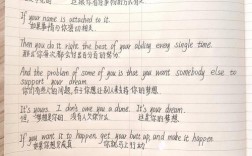 If your name is attached to it.
如果事情与你密切相关.
Then you do it right the best of your ability every single time.
那么你每次都会付出百分百的努力.
And the problem of some of you is that you want somebody else to
support your dream.
你们有些人的问题,在于你想让别人来支持你的梦想.
It's yours. I don't care you're done. It's your dream.
但,梦想是你的 没有人欠你什么 这是你的梦想.
If you want it to happen, get your butt up, and make it happen
如果你想有成真 你就马上行动!